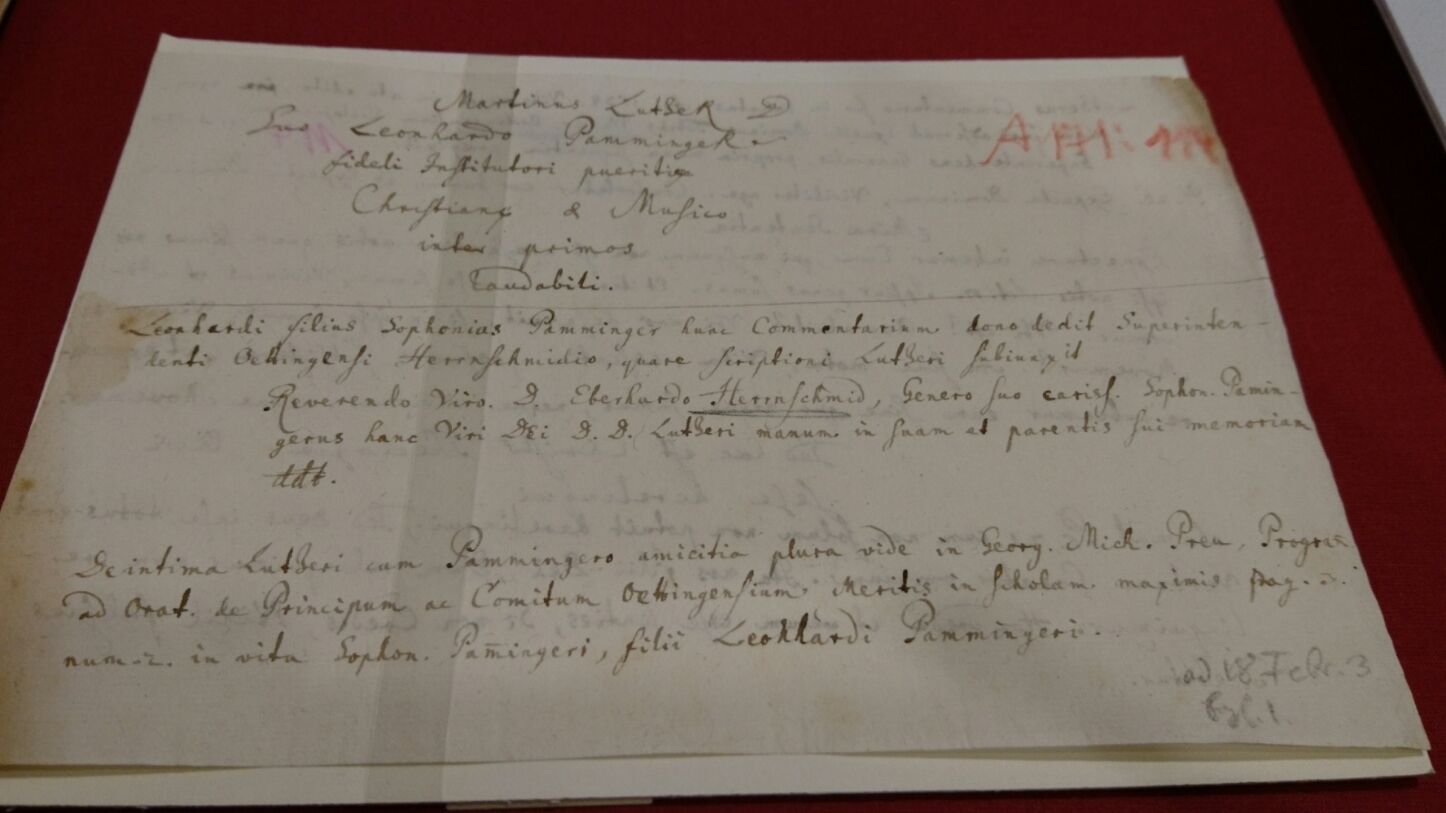 Martinus LutheR D
Suo Leonhardo PammingeR
fideli Institutori pueritiæ
Christianę & Musico
inter primos
Laudabili.
Leonhardi filius Sophonias Pamminger hunc Commentarium dono dedit Superinten-
denti Oettingensi Herrnschmidio, quare scriptioni Lutheri subiunxit
Reverendo Viro. D. Eberhardo Herrnschmid, Genero suo cariss. Sophon. Pamin-
gerus hanc Viri DEi D. D. Lutheri manum in suam et parentis sui memoriam
ddt.
De intima Lutheri cum Pammingero amicitia plura vide in Georg. Mich. Preu, Progra
ad Orat. de Principum ac Comitum Oettingensium Meritis in Scholam maximis pag. 2.
num. 2. in vita Sophon. Pam̄ingeri, filii Leonhardi Pammingeri.
ad 18. Febr. 3